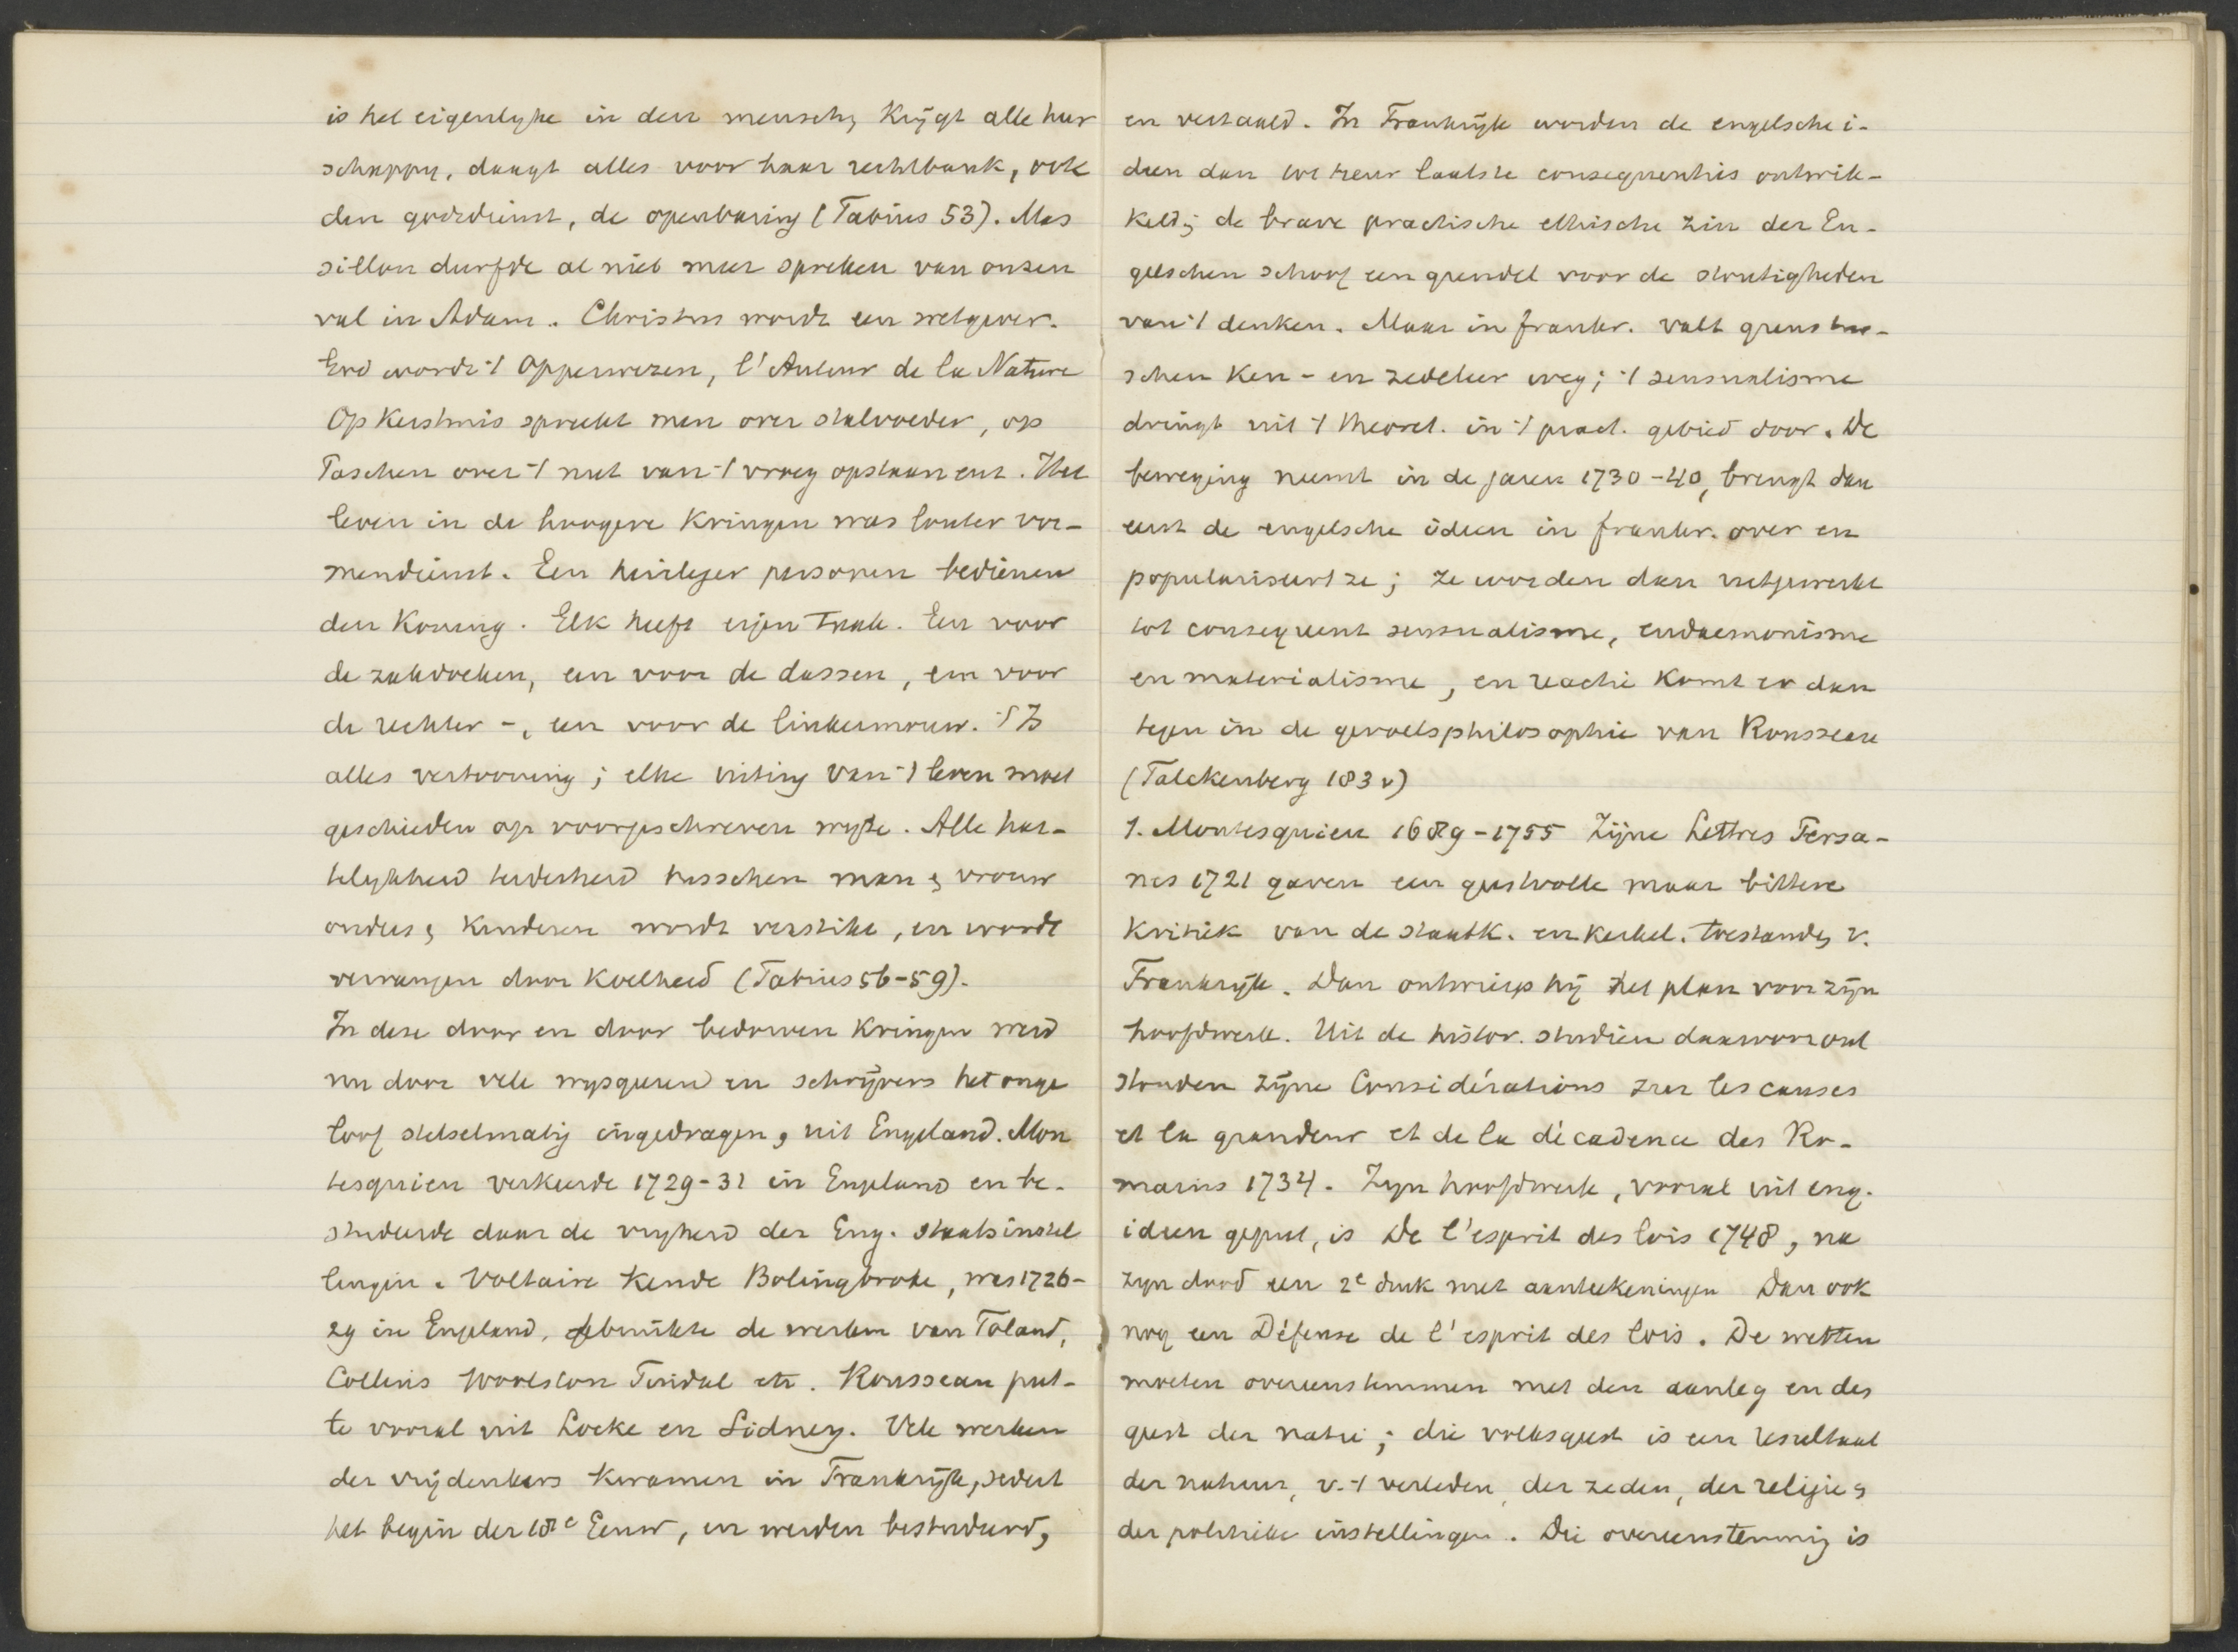 is het eigenlyke in den mensch, krijgt alle heer
schappy, daagt alles voor haar rechtbank, ook
den godsdienst, de openbaring (Fabius 53). Mas
sillon durfde al niet meer spreken van onzen
val in Adam. Christus wordt een wetgever.
God wordt 't Opperwezen, l'Auteur de la Nature
Op Kerstmis spreekt men over stalvoeder, op
Paschen over 't nut van 't vroeg opstaan enz. Het
leven in de hoogere kringen was louter vor-
mendienst. Een heirleger personen bedienen
den Koning. Elk heeft eigen taak. Een voor
de zakdoeken, een voor de dassen, een voor
de rechter -, een voor de linkermouw. 't Is
alles vertooning; elke uiting van 't leven moet
geschieden op voorgeschreven wyze. Alle har-
telykheid tederheid tusschen man & vrouw
ouders & kinderen wordt verstikt, en wordt
vervangen door koelheid (Fabius 56-59).
In deze door en door bedorven kringen werd
nu door vele wysgeeren en schrijvers het onge
loof stelselmatig ingedragen, uit Engeland. Mon
tesquieu verkeerde 1729-31 in Engeland en be-
studeerde daar de vryheid der Eng. staatsinstel
lingen. Voltaire kende Bolingbroke, was 1726-
29 in Engeland, gebruikte de werken van Toland,
Collins Woolston Tindal etc. Rousseau put-
te vooral uit Locke en Sidney. Vele werken
der vrijdenkers kwamen in Frankrijk, sedert
het begin der 18e Eeuw, en werden bestudeerd,
en vertaald. In Frankrijk worden de engelsche i-
deen dan tot heur laatste consequenties ontwik-
keld; de brave practische ethische zin der En-
gelschen schoof een grendel voor de stoutigheden
van 't denken. Maar in frankr. valt grens tus-
schen ken- en zedeleer weg; 't sensualisme
dringt uit 't theoret. in 't pract. gebied door. De
beweging neemt in de jaren 1730-40, brengt dan
eerst de engelsche ideen in frankr. over en
populariseert ze; ze worden dan uitgewerkt
tot consequent sensualisme, eudaemonisme
en materialisme, en reactie komt er dan
tegen in de gevoelsphilosophie van Rousseau
(Falckenberg 183 v)
1. Montesquieu 1689-1755 Zijne Lettres Persa-
nes 1721 gaven een geestvolle maar bittere
kritiek van de staatk. en kerkel. toestanden v.
Frankrijk. Dan ontwierp hij het plan voor zijn
hoofdwerk. Uit de histor. studien daarvoor ont
stonden zijne Considérations sur les causes
et la grandeur et de la décadence des Ro-
mains 1734. Zyn hoofdwerk, vooral uit eng.
ideen geput, is De l'esprit des lois 1748, na
zyn dood een 2e druk met aanteekeningen Dan ook
nog een Défense de l'esprit des lois. De wetten
moeten overeenstemmen met den aanleg en des
geest der natie; die volksgeest is een resultaat
der natuur, v. 't verleden, der zeden, der religie &
der politieke instellingen. Die overeenstemmig is